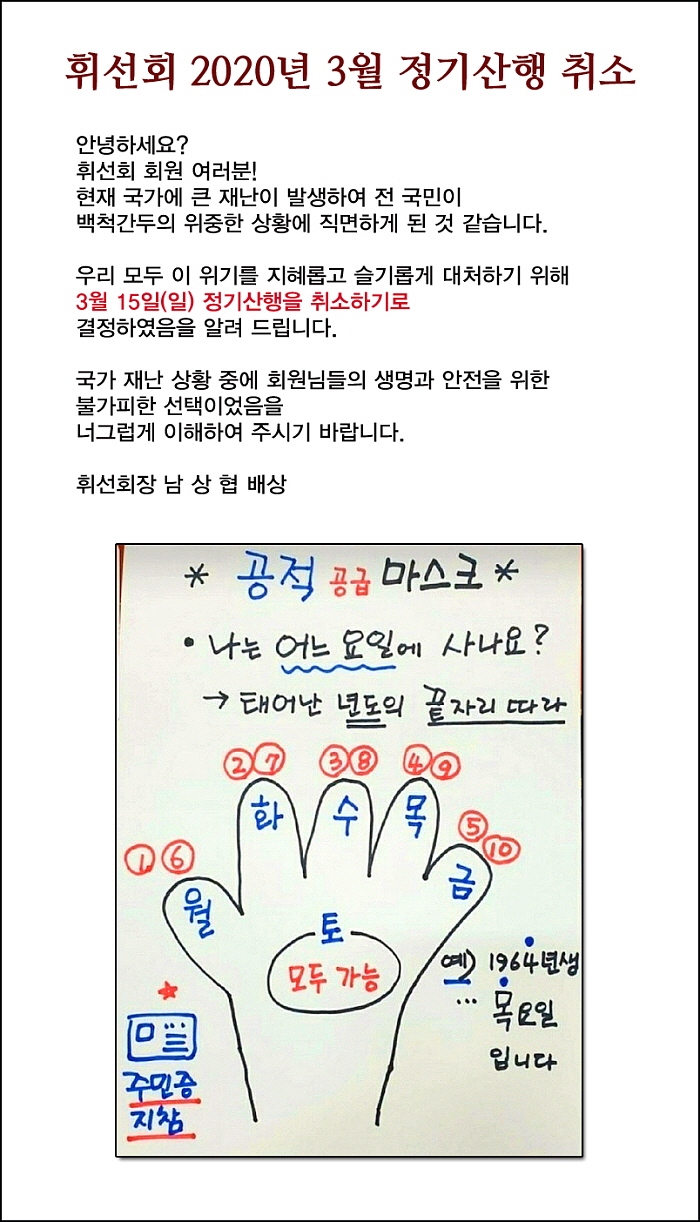 휘선회 2020년 3월 정기산행 취소
안녕하세요?
휘선회 회원 여러분!
현재 국가에 큰 재난이 발생하여 전 국민이
백척간두의 위중한 상황에 직면하게 된 것 같습니다.
우리 모두 이 위기를 지혜롭고 슬기롭게 대처하기 위해
3월 15일(일) 정기산행을 취소하기로
결정하였음을 알려 드립니다.
국가 재난 상황 중에 회원님들의 생명과 안전을 위한
불가피한 선택이었음을
너그럽게 이해하여 주시기 바랍니다.
휘선회장 남 상 협 배상
* 공적 공급 마스크 *
• 나는 어느 요일에 사나요?
→ 태어난 년도의 끝자리 따라
② ⑦ ③ ⑧ ④ ⑨
화 수 목
⑤ ⑩
① ⑥
금
월
토
모두 가능
예) 1964년생
... 목요일
입니다
주민증
지참